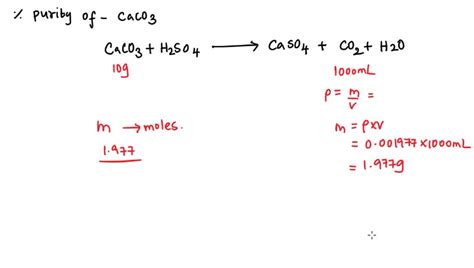 % purity of - CaCO3
CaCO3 + H2SO4 ⟶ CaSO4 + CO2 + H2O
10g 1000mL
ρ = m/v =
m → moles. m = ρxv
1.977 = 0.001977 x 1000mL
= 1.977g